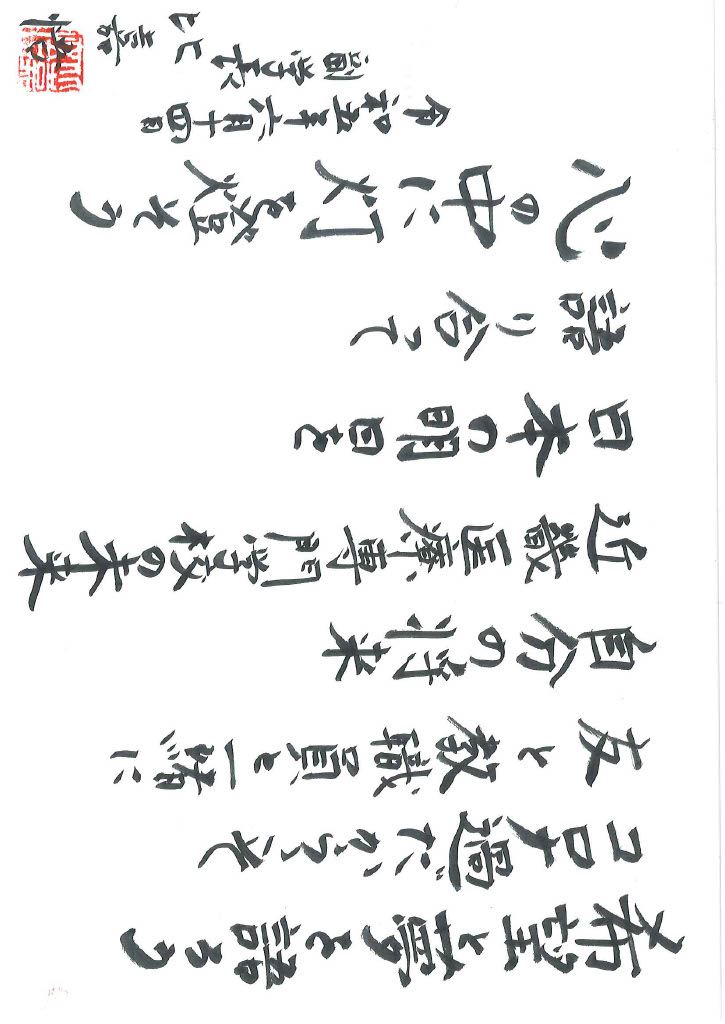 希望と夢を語ろう
コロナ過だからこそ
友と教職員と一緒に
自分の将来
近畿医療専門学校の未来
日本の明日を
語り合って
心の中に灯を燈そう
令和五年六月十四日
副学長
比嘉悟